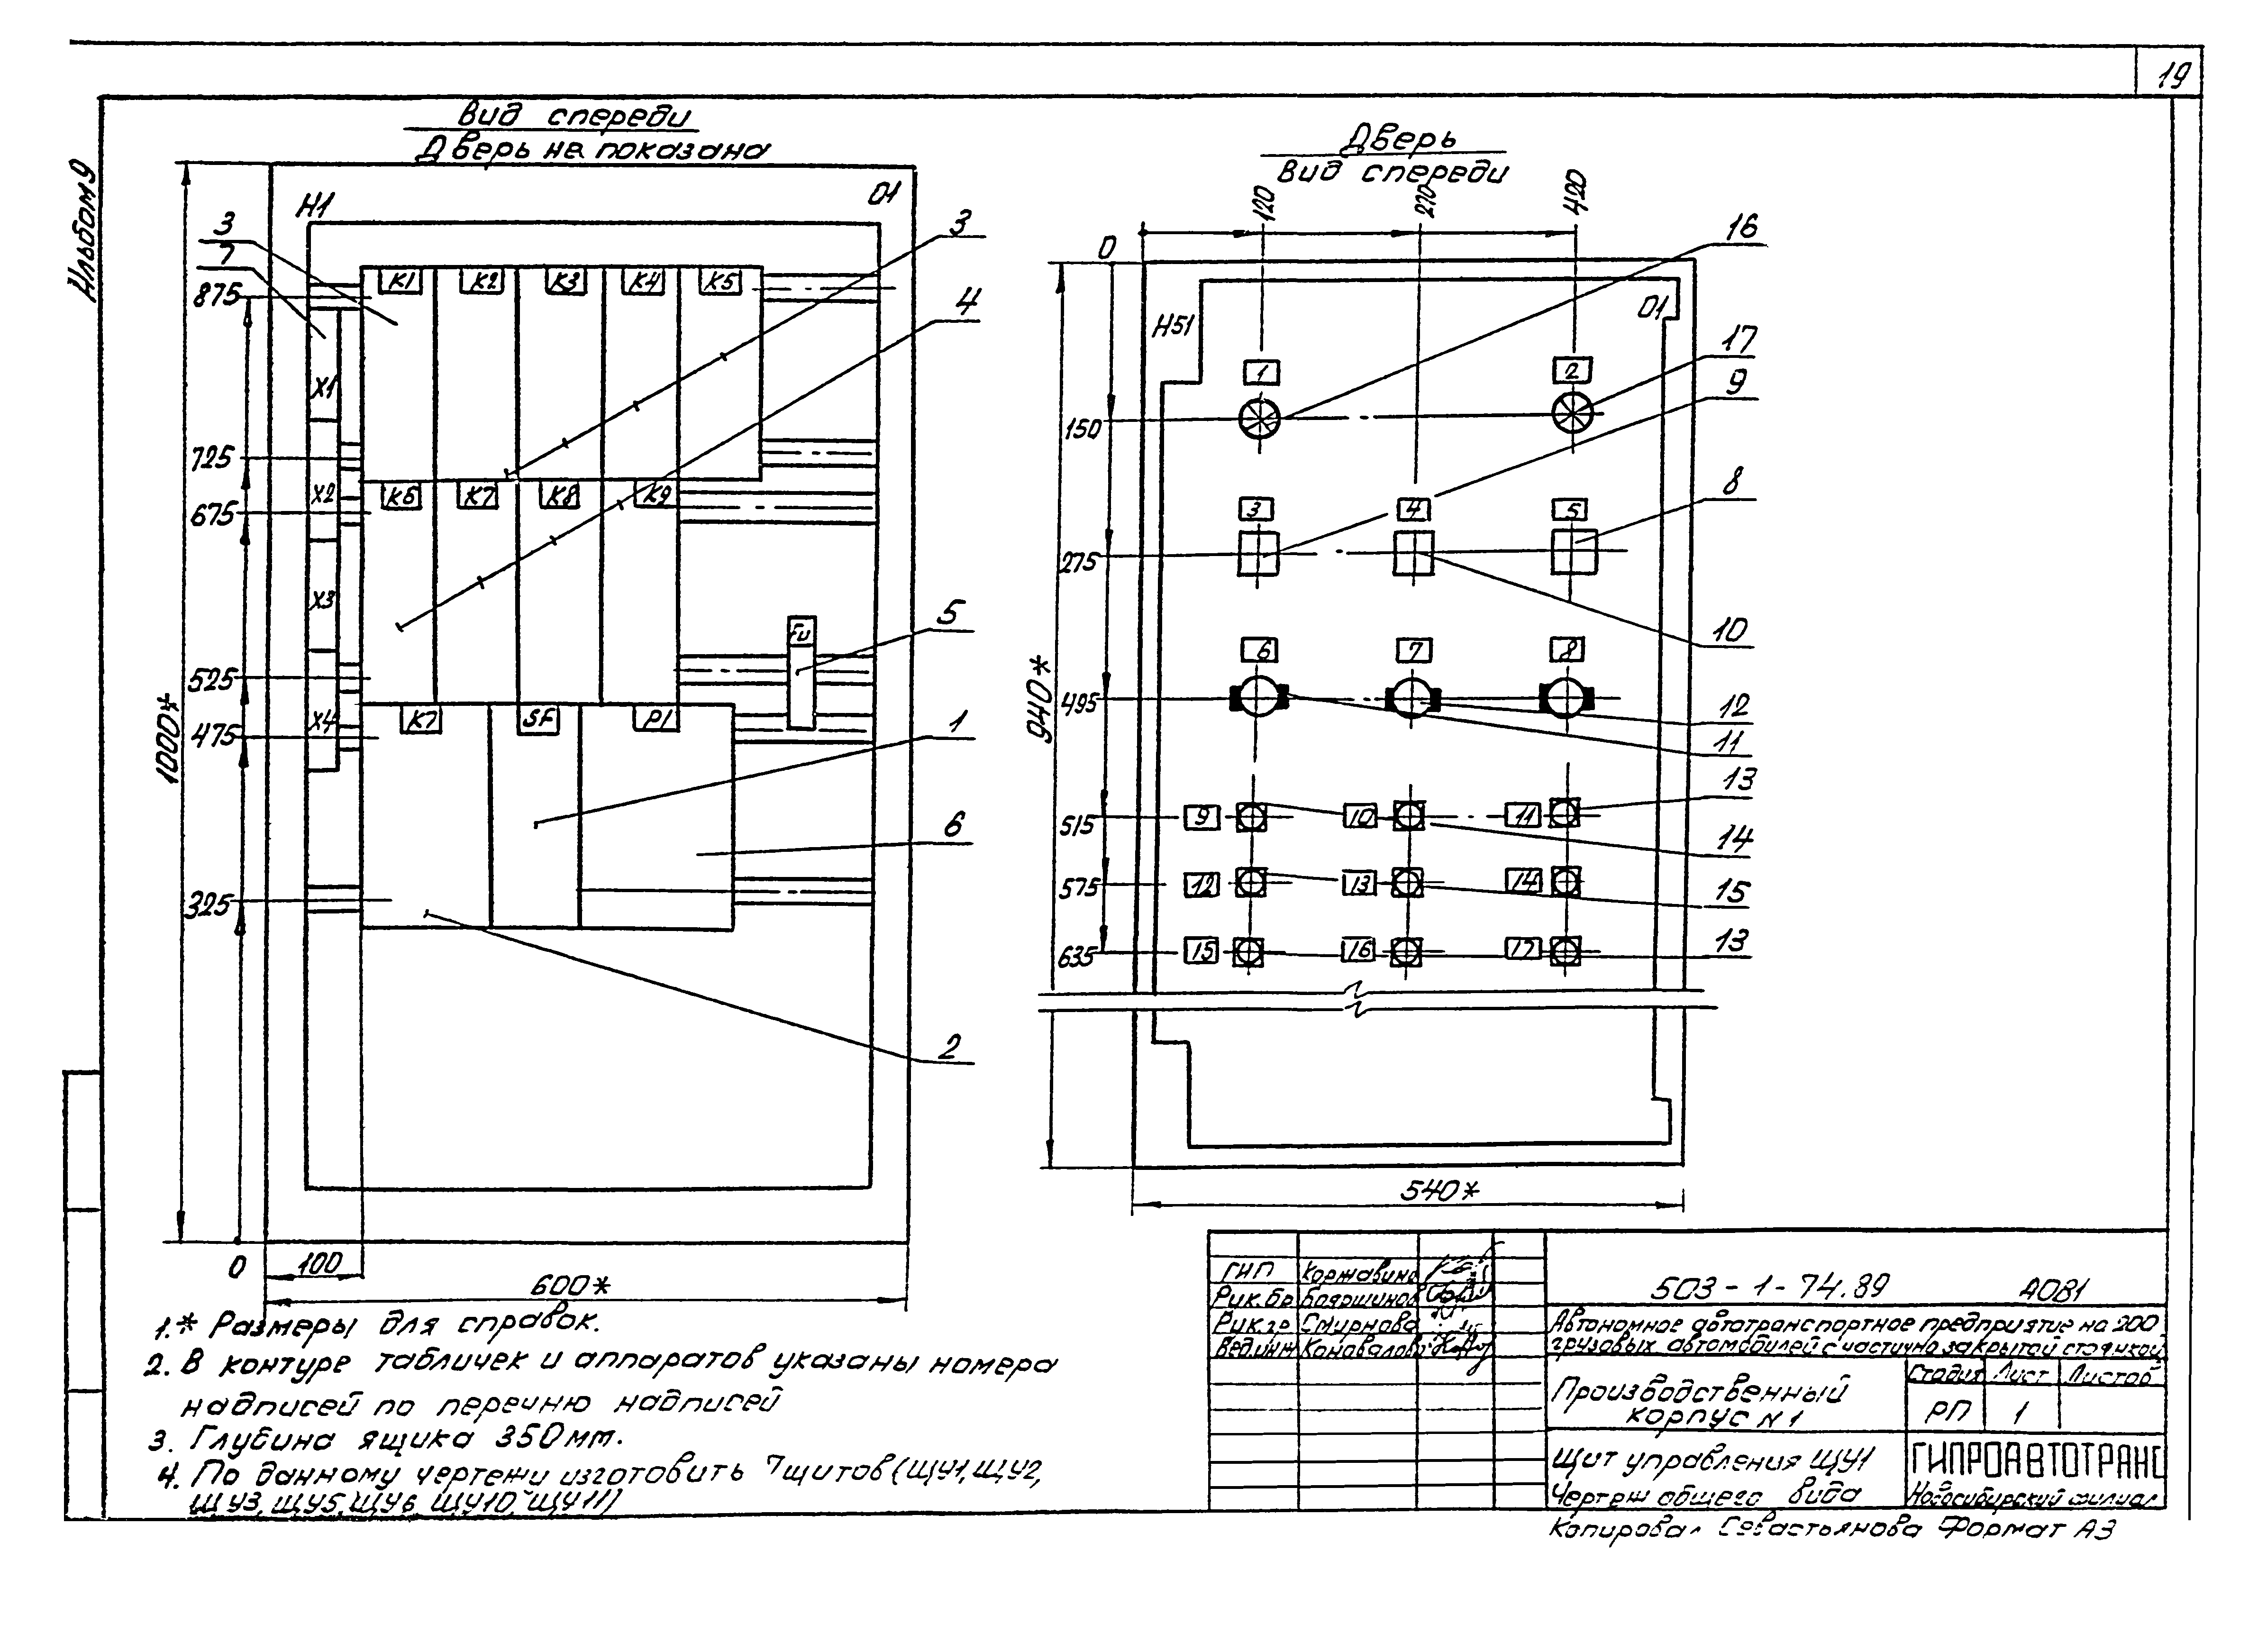 19
Альбом 9
Вид спереди
Дверь не показана
Н1
01
3
7
875
725
675
525
475
325
0
1000*
100
600*
К1 К2 К3 К4 К5
К6 К7 К8 К9
К7 SF Р1
Х1
Х2
Х3
Х4
Fu
3
4
5
1
6
2
Дверь
Вид спереди
120 270 420
0
Н51
01
150
275
495
515
575
635
940*
540*
1 2
3 4 5
6 7 8
9 10 11
12 13 14
15 16 17
16
17
9
8
10
12
11
13
14
15
13
1.* Размеры для справок.
2. В контуре табличек и аппаратов указаны номера
надписей по перечню надписей
3. Глубина ящика 350мм.
4. По данному чертежи изготовить 7 щитов (ЩУ1, ЩУ2,
ЩУ3, ЩУ5, ЩУ6, ЩУ10, ЩУ11)
ГИП Коржавина
Рук.бр. Бояршинов
Рук.гр. Смирнова
Вед.инж Коновалова
503-1-74.89 АОВ1
Автономное автотранспортное предприятие на 200
грузовых автомобилей с частично закрытой стоянкой
Производственный
корпус №1
Стадия Лист Листов
РП 1
Щит управления ЩУ1
Чертеж общего вида
ГИПРОАВТОТРАНС
Новосибирский филиал
Копировал Севастьянова Формат А3